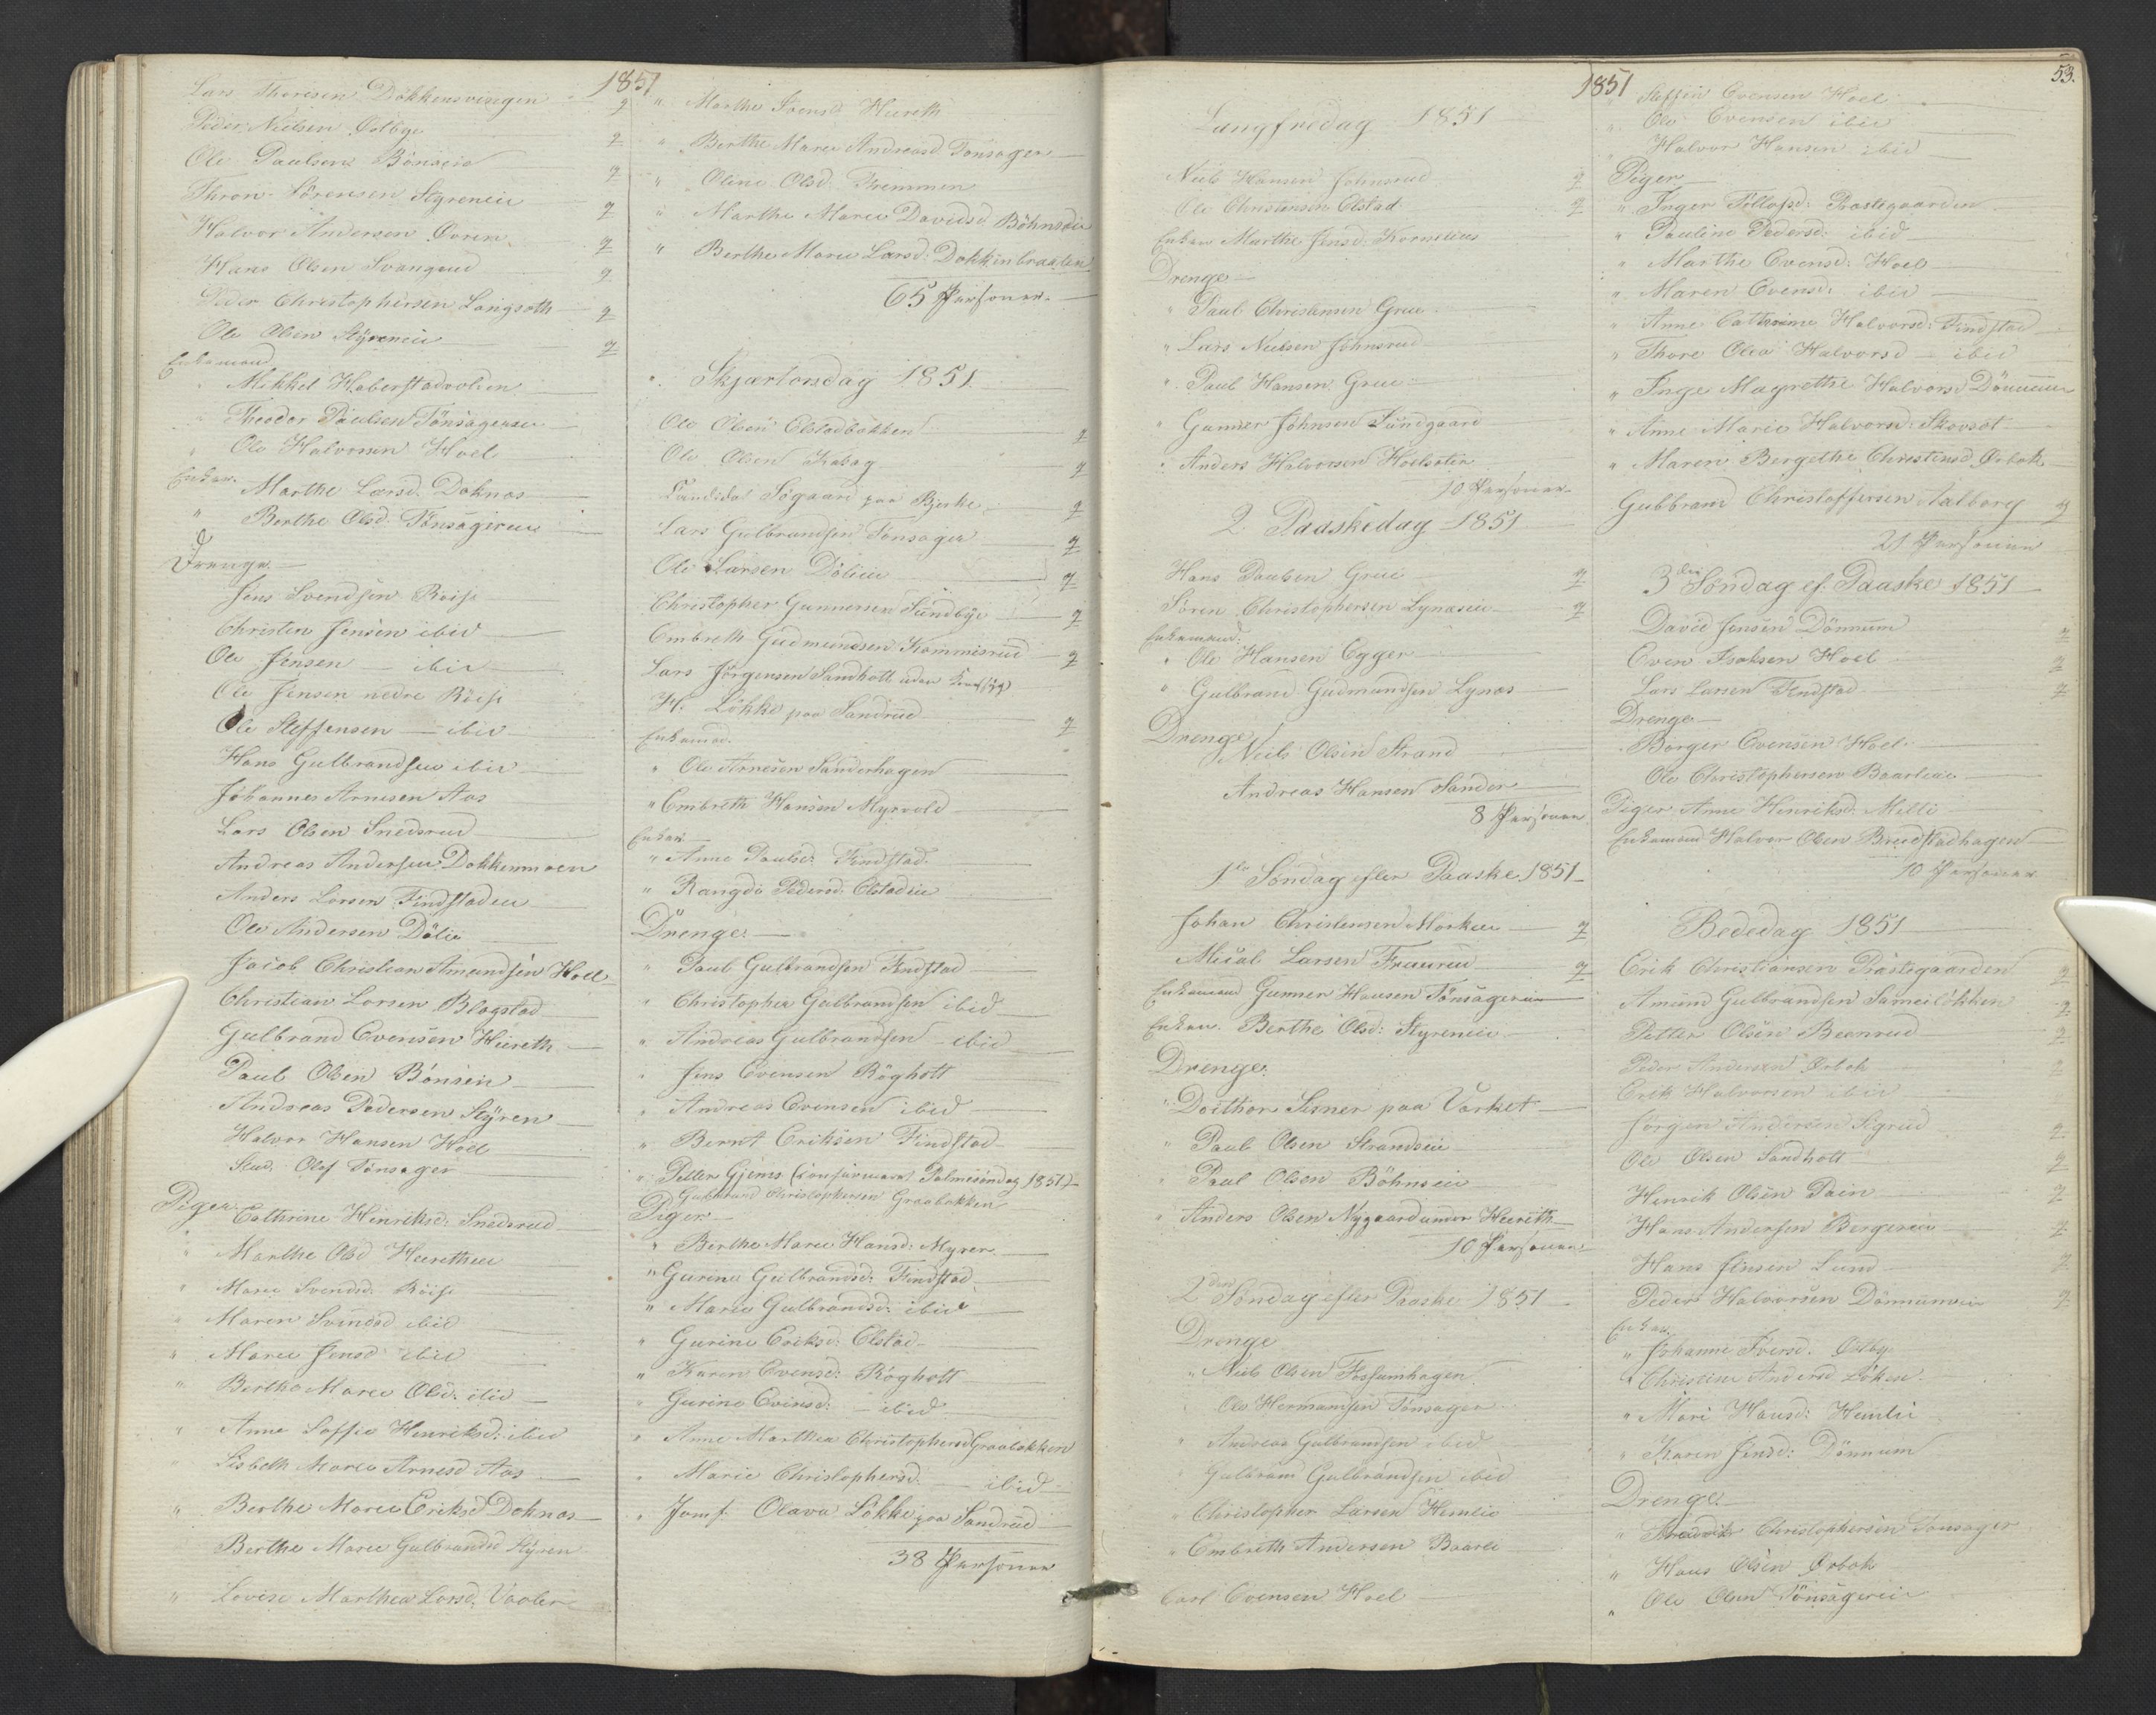 1851
Lars Thoresen Dökkensvingen
Peder Nielsen Østbye 2
Ole Paulsen Bönseie 2
Thron Sörensen Styreneie 2
Halvor Andersen Ovren 2
Hans Olsen Svangrud 2
Peder Christophersen Langsæth 2
Ole Olsen Styreneie 2
Enkemænd
" Mikkel Haberstadvolden
" Theodor Paulsen Tönsagereie
" Ole Halvorsen Hoel
Enker.
Marthe Larsd. Doknæs
" Berthe Olsd. Tönsagereie
Drenge
Jens Svendsen Röise
Christen Jensen ibid
Ole Jensen ibid
Ole Jensen nedre Röise
Ole Steffensen ibid
Hans Gulbrandsen ibid
Johannes Arnesen Aas
Lars Olsen Snedsrud
Andreas Andersen Dokkenmoen
Anders Larsen Findstadeie
Ole Andersen Dölie
Jacob Christian Amundsen Hoel
Christian Larsen Blagstad
Gulbrand Evensen Hureth
Paul Olsen Bönseie
Andreas Pedersen Styren
Halvor Hansen Hoel
Stud. Olaf Tönsager
Piger
Cathrine Henriksd: Snedsrud
" Marthe Olsd Heretheie
" Maree Svendsd. Röise
" Maren Svendsd ibid
" Maree Jensd ibid
" Berthe Maree Olsd: ibid
" Anne Soffie Henriksd: ibid
" Lisbeth Maree Arnesd Aas
" Berthe Maree Eriksd Doknæs
Berthe Maree Gulbrandsd Styren
" Lovise Marthea Larsd. Vaaler
" Marthe Iversd Hureth
" Berthe Maree Andreasd. Tonsager
" Oline Olsd. Fremmen
" Marthe Maree Davidsd. Böhnseie
" Berthe Maree Larsd: Dokkenbraaten
65 Personer.
Skjærtorsdag 1851
Ole Olsen Elstadbakken 2
Ole Olsen Habag 2
Candidat Søgaard paa Bjerke 2
Lars Gulbrandsen Tönsager 2
Ole Larsen Dölieie 2
Christopher Gunnersen Sundbye 2
Embreth Gudmundsen Kommisrud 2
Lars Jörgensen Sandholt uden
H. Lökke paa Sandrud 2
Enkemænd.
" Ole Arnesen Sanderhagen
" Embreth Hansen Myrvold
Enker
" Anne Paulsd: Findstad
" Rangdi Pedersd. Elstadeie
Drenge:
" Paul Gulbrandsen Findstad
" Christopher Gulbrandsen ibid
" Andreas Gulbrandsen ibid
" Jens Evensen Rögholt
" Andreas Evensen ibid
" Bernt Eriksen Findstad
" Petter Gjems (confirmeret Palmesöndag 1851)
Gulbrand Christophersen Graabakken
Piger
" Berthe Maree Hansd: Myrer
" Gurine Gulbrandsd: Findstad
" Maree Gulbrandsd: ibid
" Gurine Eriksd: Elstad
" Karen Evensd: Rögholt
" Gurine Evensd: ibid
" Anne Marthea Christophersd Graabakken
" Marie Christophersd. ibid
" Jomf. Olava Lökke paa Sandrud
38 Personer
1851
53.
Langfredag 1851
Niels Hansen Johnsrud 2
Ole Christensen Elstad 2
Enken Marthe Jensd. Kornelius
Drenge
" Paul Christensen Grue
" Lars Nielsen Johnsrud
" Paul Hansen Grue
" Gunner Johnsen Sundgaard
" Anders Halvorsen Hoelsæter
10 Personer
2 Paaskedag 1851
Hans Paulsen Grue 2
Sören Christophersen Lynæseie 2
Enkemænd.
" Ole Hansen Egger
" Gulbrand Gudmundsen Lynæs
Drenge
Niels Olsen Strand
Andreas Hansen Sander
8 Personer
1ste Søndag efter Paaske 1851
Johan Christensen Morken 2
Micael Larsen Fraurud 2
Enkemand Gunner Hansen Tönsagereie
Enken. Berthe Olsd: Styreneie
Drenge.
" Dorthor Sisner paa Værket
" Paul Olsen Strandseie
" Paul Olsen Böhnseie
" Anders Olsen Nygaard under Heereth
10 Personer
2den Søndag efter Paaske 1851
Drenge
" Niels Olsen Fossumhagen
Ole Hermansen Tönsager
" Andreas Gulbrandsen ibid
" Gulbrand Gulbrandsen ibid
" Christopher Larsen Hemlie
" Embreth Andersen Baarli
Carl Evensen Hoel
Steffen Evensen Hoel
" Ole Evensen ibid
" Halvor Hansen ibid
Piger
" Inger Tollefsd: Præstegaarden
" Pauline Pedersd: ibid
" Marthe Evensd: Hoel
" Maren Evensd: ibid
" Anne Cathrine Halvorsd: Findstad
" Thore Olea Halvorsd ibid
" Inge Magrethe Halvorsd Dönnum
" Anne Marie Halvorsd: Skovsæt
" Maren Bergethe Christensd Ørbæk
Gulbrand Christoffersen Aalborg 2
21 Personer
3die Søndag ef. Paaske 1851
David Jensen Dönnum 2
Even Isaksen Hoel 2
Lars Larsen Findstad 2
Drenge
Börger Evensen Hoel
Ole Christophersen Baarlieie
Piger Anne Henriksd: Melli
Enkemand Halvor Olsen Bredstadhagen
10 Personer
Bededag 1851
Erik Christiansen Præstegaarden 2
Amund Gulbrandsen Sameilökken 2
Petter Olsen Beenrud 2
Peder Andersen Ørbæk 2
Erik Halvorsen ibid
Jørgen Andersen Sigrud 2
Ole Olsen Sandholt 2
Henrik Olsen Pain 2
Hans Andersen Bergereie 2
Hans Jensen Lund 2
Peder Halvorsen Dönnumeie 2
Enker
" Johanne Iversd. Østby
" Christine Andersd Løken
" Mari Hansd: Hemlie
" Karen Jensd: Dönnum
Drenge
" Fredrik Christophersen Tonsager
" Hans Olsen Ørbæk
" Ole Olsen Tönsagereie